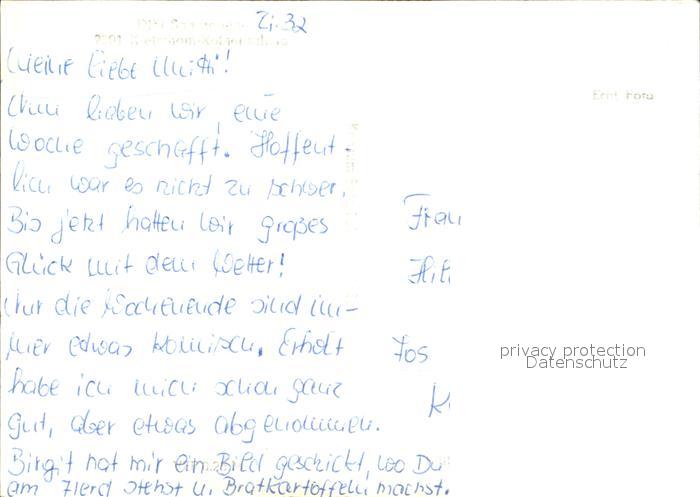 Zi. 32
Meine liebe Mutti!
Nun haben wir eine
Woche geschafft. Hoffent-
lich war es nicht zu schwer.
Bis jetzt hatten wir großes
Glück mit dem Wetter!
Nur die Wochenende sind im-
mer etwas komisch. Erholt
habe ich mich schon ganz
gut, aber etwas abgenommen.
Birgit hat mir ein Bild geschickt, wo Du
am Herd stehst u. Bratkartoffeln machst.
Echt Foto
Frau
Hil
privacy protection
Datenschutz